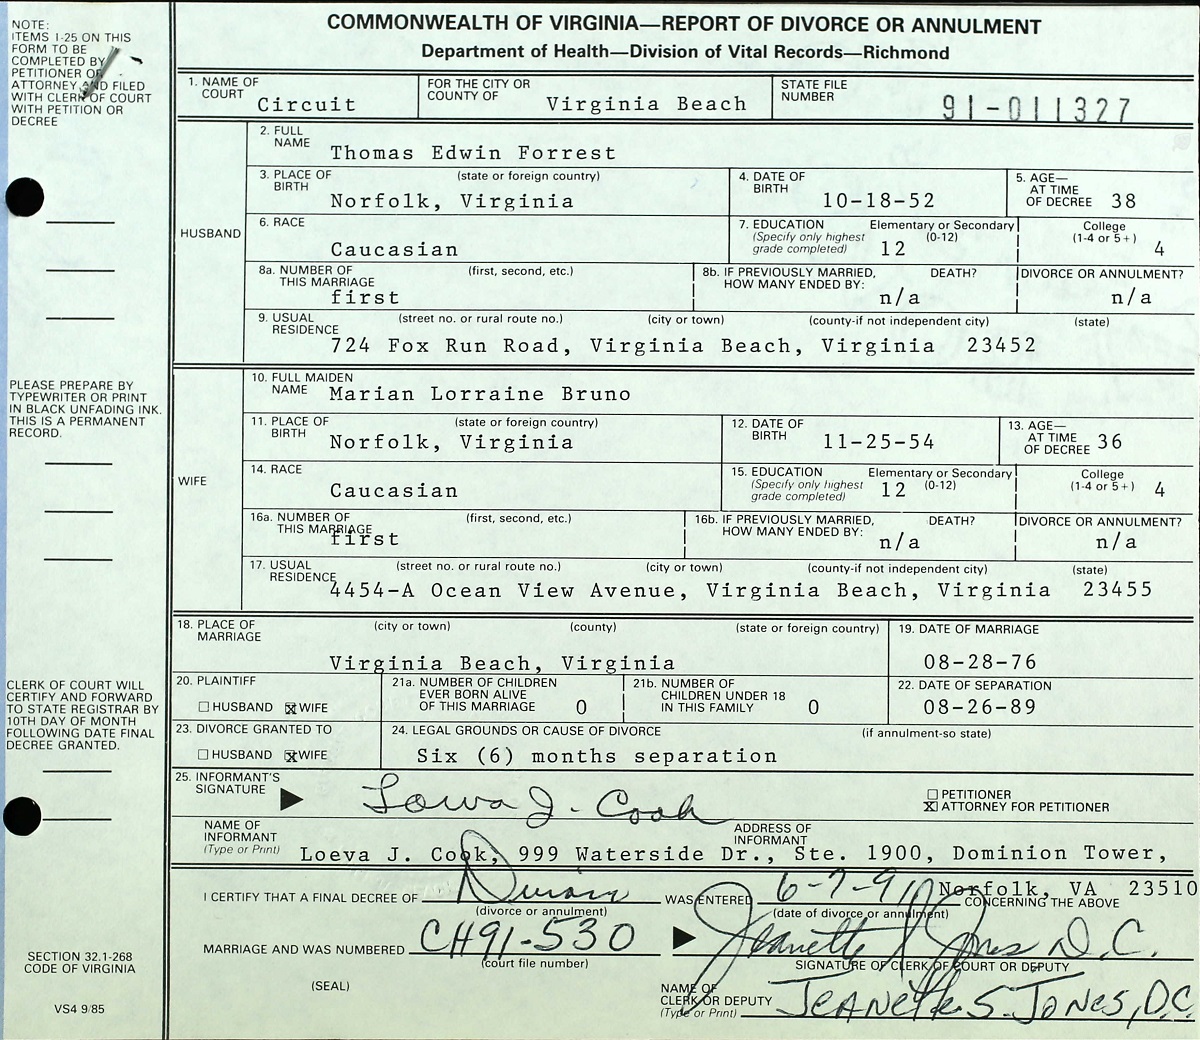 COMMONWEALTH OF VIRGINIA—REPORT OF DIVORCE OR ANNULMENT
Department of Health—Division of Vital Records—Richmond
NOTE:
ITEMS 1-25 ON THIS
FORM TO BE
COMPLETED BY
PETITIONER OR
ATTORNEY AND FILED
WITH CLERK OF COURT
WITH PETITION OR
DECREE
PLEASE PREPARE BY
TYPEWRITER OR PRINT
IN BLACK UNFADING INK.
THIS IS A PERMANENT
RECORD.
CLERK OF COURT WILL
CERTIFY AND FORWARD
TO STATE REGISTRAR BY
10TH DAY OF MONTH
FOLLOWING DATE FINAL
DECREE GRANTED.
SECTION 32.1-268
CODE OF VIRGINIA
VS4 9/85
1. NAME OF COURT Circuit FOR THE CITY OR COUNTY OF Virginia Beach STATE FILE NUMBER 91-011327
HUSBAND
2. FULL NAME Thomas Edwin Forrest
3. PLACE OF BIRTH (state or foreign country) Norfolk, Virginia 4. DATE OF BIRTH 10-18-52 5. AGE— AT TIME OF DECREE 38
6. RACE Caucasian 7. EDUCATION (Specify only highest grade completed) Elementary or Secondary (0-12) 12 College (1-4 or 5+) 4
8a. NUMBER OF THIS MARRIAGE (first, second, etc.) first 8b. IF PREVIOUSLY MARRIED, HOW MANY ENDED BY: DEATH? n/a DIVORCE OR ANNULMENT? n/a
9. USUAL RESIDENCE (street no. or rural route no.) (city or town) (county-if not independent city) (state)
724 Fox Run Road, Virginia Beach, Virginia 23452
WIFE
10. FULL MAIDEN NAME Marian Lorraine Bruno
11. PLACE OF BIRTH (state or foreign country) Norfolk, Virginia 12. DATE OF BIRTH 11-25-54 13. AGE— AT TIME OF DECREE 36
14. RACE Caucasian 15. EDUCATION (Specify only highest grade completed) Elementary or Secondary (0-12) 12 College (1-4 or 5+) 4
16a. NUMBER OF THIS MARRIAGE (first, second, etc.) first 16b. IF PREVIOUSLY MARRIED, HOW MANY ENDED BY: DEATH? n/a DIVORCE OR ANNULMENT? n/a
17. USUAL RESIDENCE (street no. or rural route no.) (city or town) (county-if not independent city) (state)
4454-A Ocean View Avenue, Virginia Beach, Virginia 23455
18. PLACE OF MARRIAGE (city or town) (county) (state or foreign country) Virginia Beach, Virginia 19. DATE OF MARRIAGE 08-28-76
20. PLAINTIFF ☐ HUSBAND ☒ WIFE 21a. NUMBER OF CHILDREN EVER BORN ALIVE OF THIS MARRIAGE 0 21b. NUMBER OF CHILDREN UNDER 18 IN THIS FAMILY 0 22. DATE OF SEPARATION 08-26-89
23. DIVORCE GRANTED TO ☐ HUSBAND ☒ WIFE 24. LEGAL GROUNDS OR CAUSE OF DIVORCE (if annulment-so state) Six (6) months separation
25. INFORMANT'S SIGNATURE Loeva J. Cook ☐ PETITIONER ☒ ATTORNEY FOR PETITIONER
NAME OF INFORMANT (Type or Print) ADDRESS OF INFORMANT
Loeva J. Cook, 999 Waterside Dr., Ste. 1900, Dominion Tower,
Norfolk, VA 23510
I CERTIFY THAT A FINAL DECREE OF Divorce (divorce or annulment) WAS ENTERED 6-7-91 (date of divorce or annulment) CONCERNING THE ABOVE
MARRIAGE AND WAS NUMBERED CH91-530 (court file number) Jeanette S Jones D.C.
SIGNATURE OF CLERK OF COURT OR DEPUTY
(SEAL) NAME OF CLERK OR DEPUTY (Type or Print) JEANETTE S. JONES, D.C.